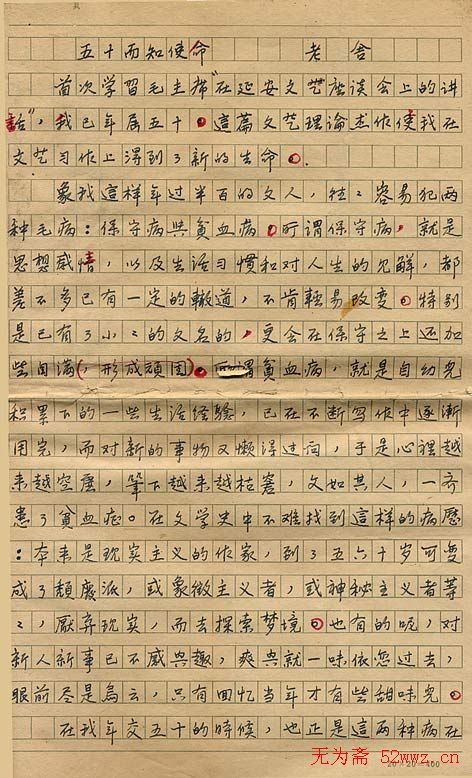 五十而知使命　　老舍
首次学習毛主席"在延安文艺座谈会上的讲
話"，我已年居五十。這篇文艺理論杰作使我在
文艺习作上得到了新的生命。
象我這样年过半百的文人，往々容易犯两
种毛病：保守病與貧血病。所谓保守病，就是
思想感情，以及生活习惯和对人生的见解，都
差不多已有一定的轍道，不肯輕易改变。特别
是已有了小々的文名的，更会在保守之上还加
些自满(，形成頑固)。所謂貧血病，就是自幼儿
积累下的一些生活经驗，已在不断写作中逐漸
用完，而对新的事物又懶得过问，于是心裡越
来越空虚，筆下越来越枯窘，文如其人，一齐
患了貧血症。在文学史中不难找到這样的病歷
：本来是现实主义的作家，到了五六十岁可变
成了頹廢派，或象徵主义者，或神秘主义者等
々，厭弃现实，而去探索梦境。也有的呢，对
新人新事已不感興趣，爽興就一味依恋过去，
眼前尽是烏云，只有回忆当年才有些甜味儿。
在我年交五十的時候，也正是這两种病在
20×20=400
无为斋 52wwz.cn